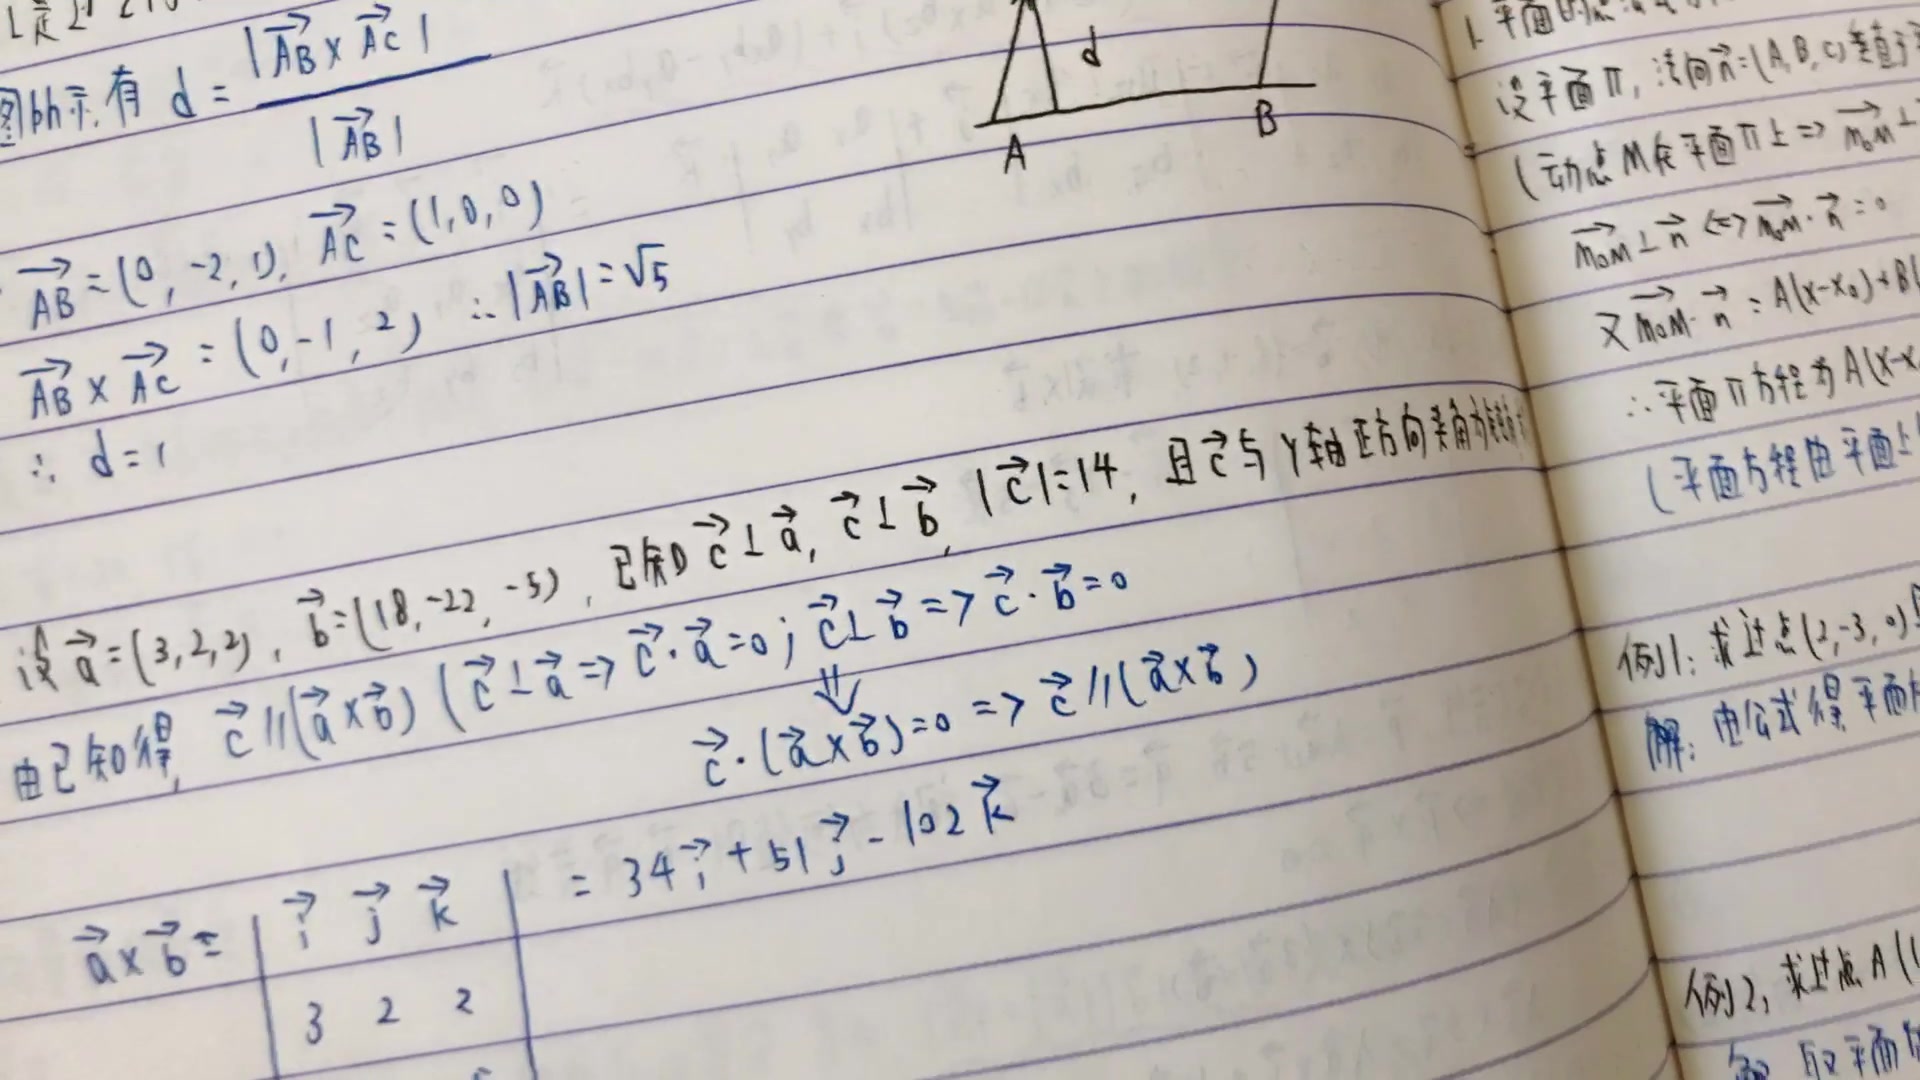 图所示.有 d = |AB× AC| / |AB|
d
A B
AB = (0, -2, 1), AC = (1, 0, 0)
AB × AC = (0, -1, 2) ∴ |AB| = √5
∴ d = 1
设 a = (3, 2, 2), b = (18, -22, -5), 已知 c⊥a, c⊥b, |c|=14, 且c与Y轴正方向夹角为钝
由已知得, c // (a×b) (c⊥a => c·a=0; c⊥b => c·b=0
⇓
c·(a×b)=0 => c // (a×b)
a×b = | i j k = 34i + 51j - 102k
3 2 2
1. 平面的点
设平面π, 法向n=(A, B, C)垂直于
(动点M在平面π上 => M₀M⊥
M₀M⊥n <=> M₀M·n = 0
又M₀M·n = A(x-x₀)+B(
∴平面π方程为A(x-x
(平面方程由平面上
例1: 求过点(2, -3, 0)
解: 由公式得平面
例2, 求过点A(1
取平面